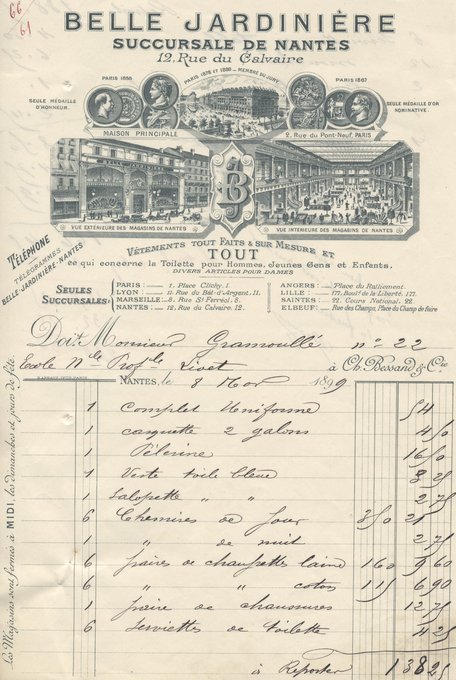 66
61
BELLE JARDINIÈRE
SUCCURSALE DE NANTES
12, Rue du Calvaire
PARIS 1855
PARIS 1878 et 1889 - MEMBRE DU JURY
PARIS 1867
SEULE MÉDAILLE D'HONNEUR.
SEULE MÉDAILLE D'OR NOMINATIVE.
MAISON PRINCIPALE
2, Rue du Pont-Neuf, PARIS
BELLE JARDINIÈRE
BJ
VUE EXTÉRIEURE DES MAGASINS DE NANTES
VUE INTÉRIEURE DES MAGASINS DE NANTES
TÉLÉPHONE
TÉLÉGRAMMES
BELLE-JARDINIÈRE-NANTES
VÊTEMENTS TOUT FAITS & SUR MESURE ET
TOUT
ce qui concerne la Toilette pour Hommes, Jeunes Gens et Enfants,
DIVERS ARTICLES POUR DAMES
SEULES SUCCURSALES:
PARIS : 1, Place Clichy. 1
LYON : 11, Rue du Bât-d'Argent. 11
MARSEILLE : 8, Rue St Ferréol. 8
NANTES : 12, Rue du Calvaire. 12
ANGERS : Place du Ralliement.
LILLE : 177, Boul.d de la Liberté. 177
SAINTES : 22, Cours National. 22
ELBEUF : Rue des Champs, Place du Champ de foire
Doit Monsieur Gramoullé n° 22
Ecole Nle Profle Livet à Ch. Bessand & Cie
NANTES, le 8 Nov 1899
1 Complet Uniforme 54
1 casquette 2 galons 4 50
1 Pèlerine 16 50
1 Veste toile bleue 3 25
1 Salopette " " 2 75
6 Chemises de jour 3 50 21
1 " de nuit 2 75
6 paires de chaussettes laine 1 60 9 60
6 " " coton 1 15 6 90
1 paire de chaussures 12 75
6 Serviettes de toilette 4 25
à Reporter 138 25
Les Magasins sont fermés à MIDI, les dimanches et jours de fête.